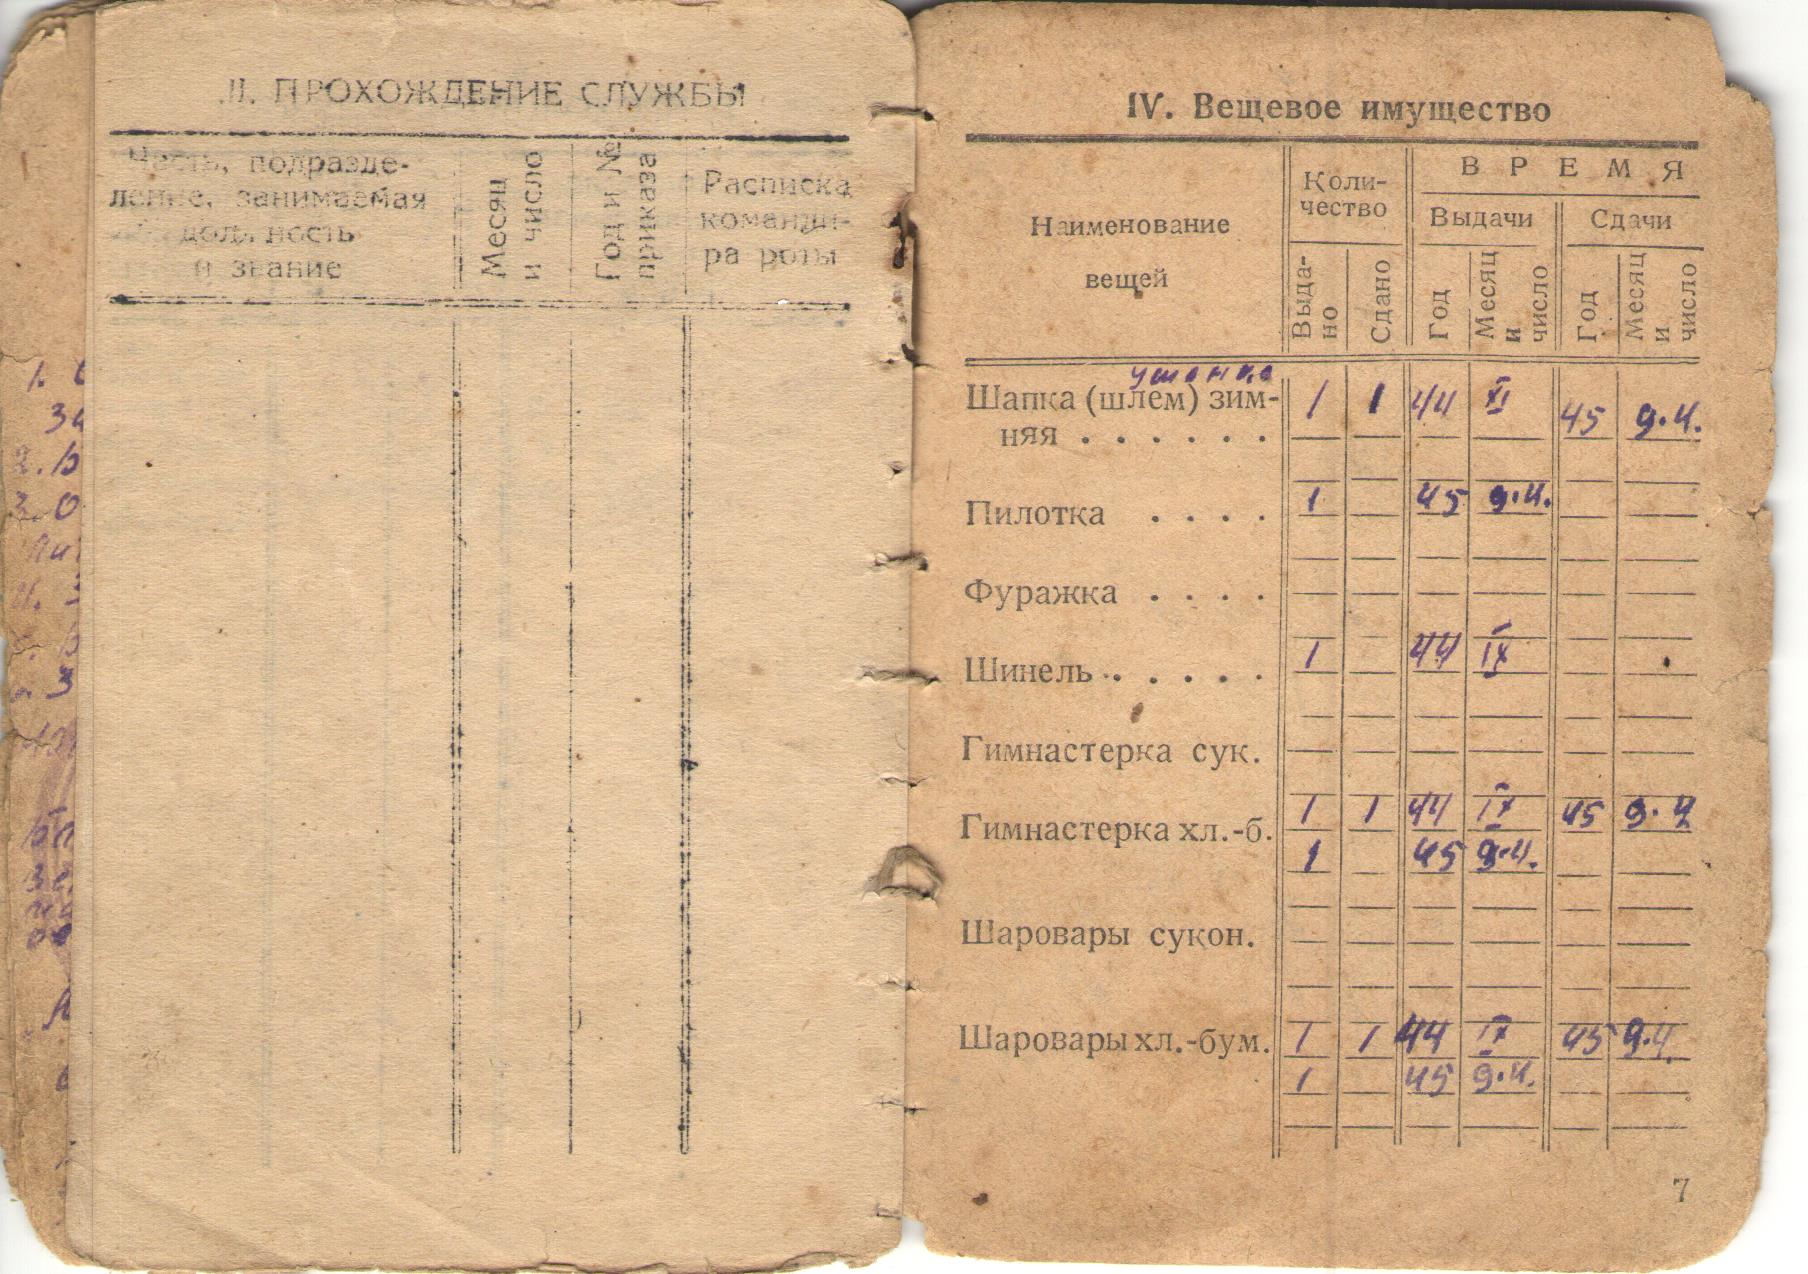 II. ПРОХОЖДЕНИЕ СЛУЖБЫ
Часть, подразде-
ление, занимаемая
должность
и звание
Месяц
и число
Год и №
приказа
Расписка
команди-
ра роты
1.
2.
3.
IV. Вещевое имущество
Наименование
вещей
Коли-
чество
ВРЕМЯ
Выдачи
Сдачи
Выда-
но
Сдано
Год
Месяц
и
число
Год
Месяц
и
число
ушанка
Шапка (шлем) зим- 1 1 44 XI 45 9.4.
няя . . . . . .
Пилотка . . . . 1 45 9.4.
Фуражка . . . .
Шинель . . . . . 1 44 IX
Гимнастерка сук.
Гимнастерка хл.-б. 1 1 44 IX 45 9.4
1 45 9.4.
Шаровары сукон.
Шаровары хл.-бум. 1 1 44 IX 45 9.4.
1 45 9.4.
7